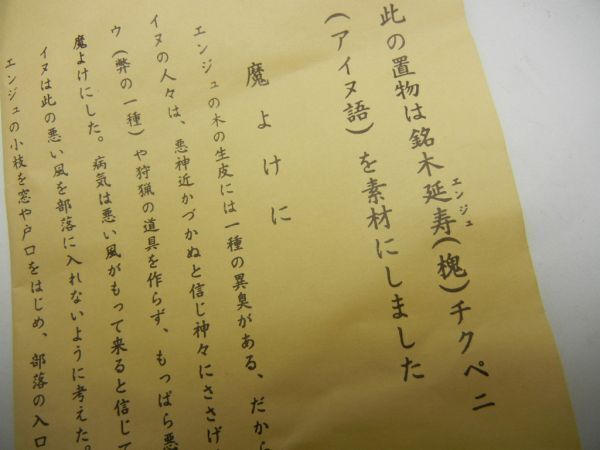 此の置物は銘木延寿(槐)チクペニ
エンジュ
(アイヌ語)を素材にしました
魔よけに
エンジュの木の生皮には一種の異臭がある、だから
イヌの人々は、悪神近かづかぬと信じ神々にささげ
ウ(弊の一種)や狩猟の道具を作らず、もっぱら悪
魔よけにした。病気は悪い風がもって来ると信じて
イヌは此の悪い風を部落に入れないように考えた。
エンジュの小枝を窓や戸口をはじめ、部落の入口